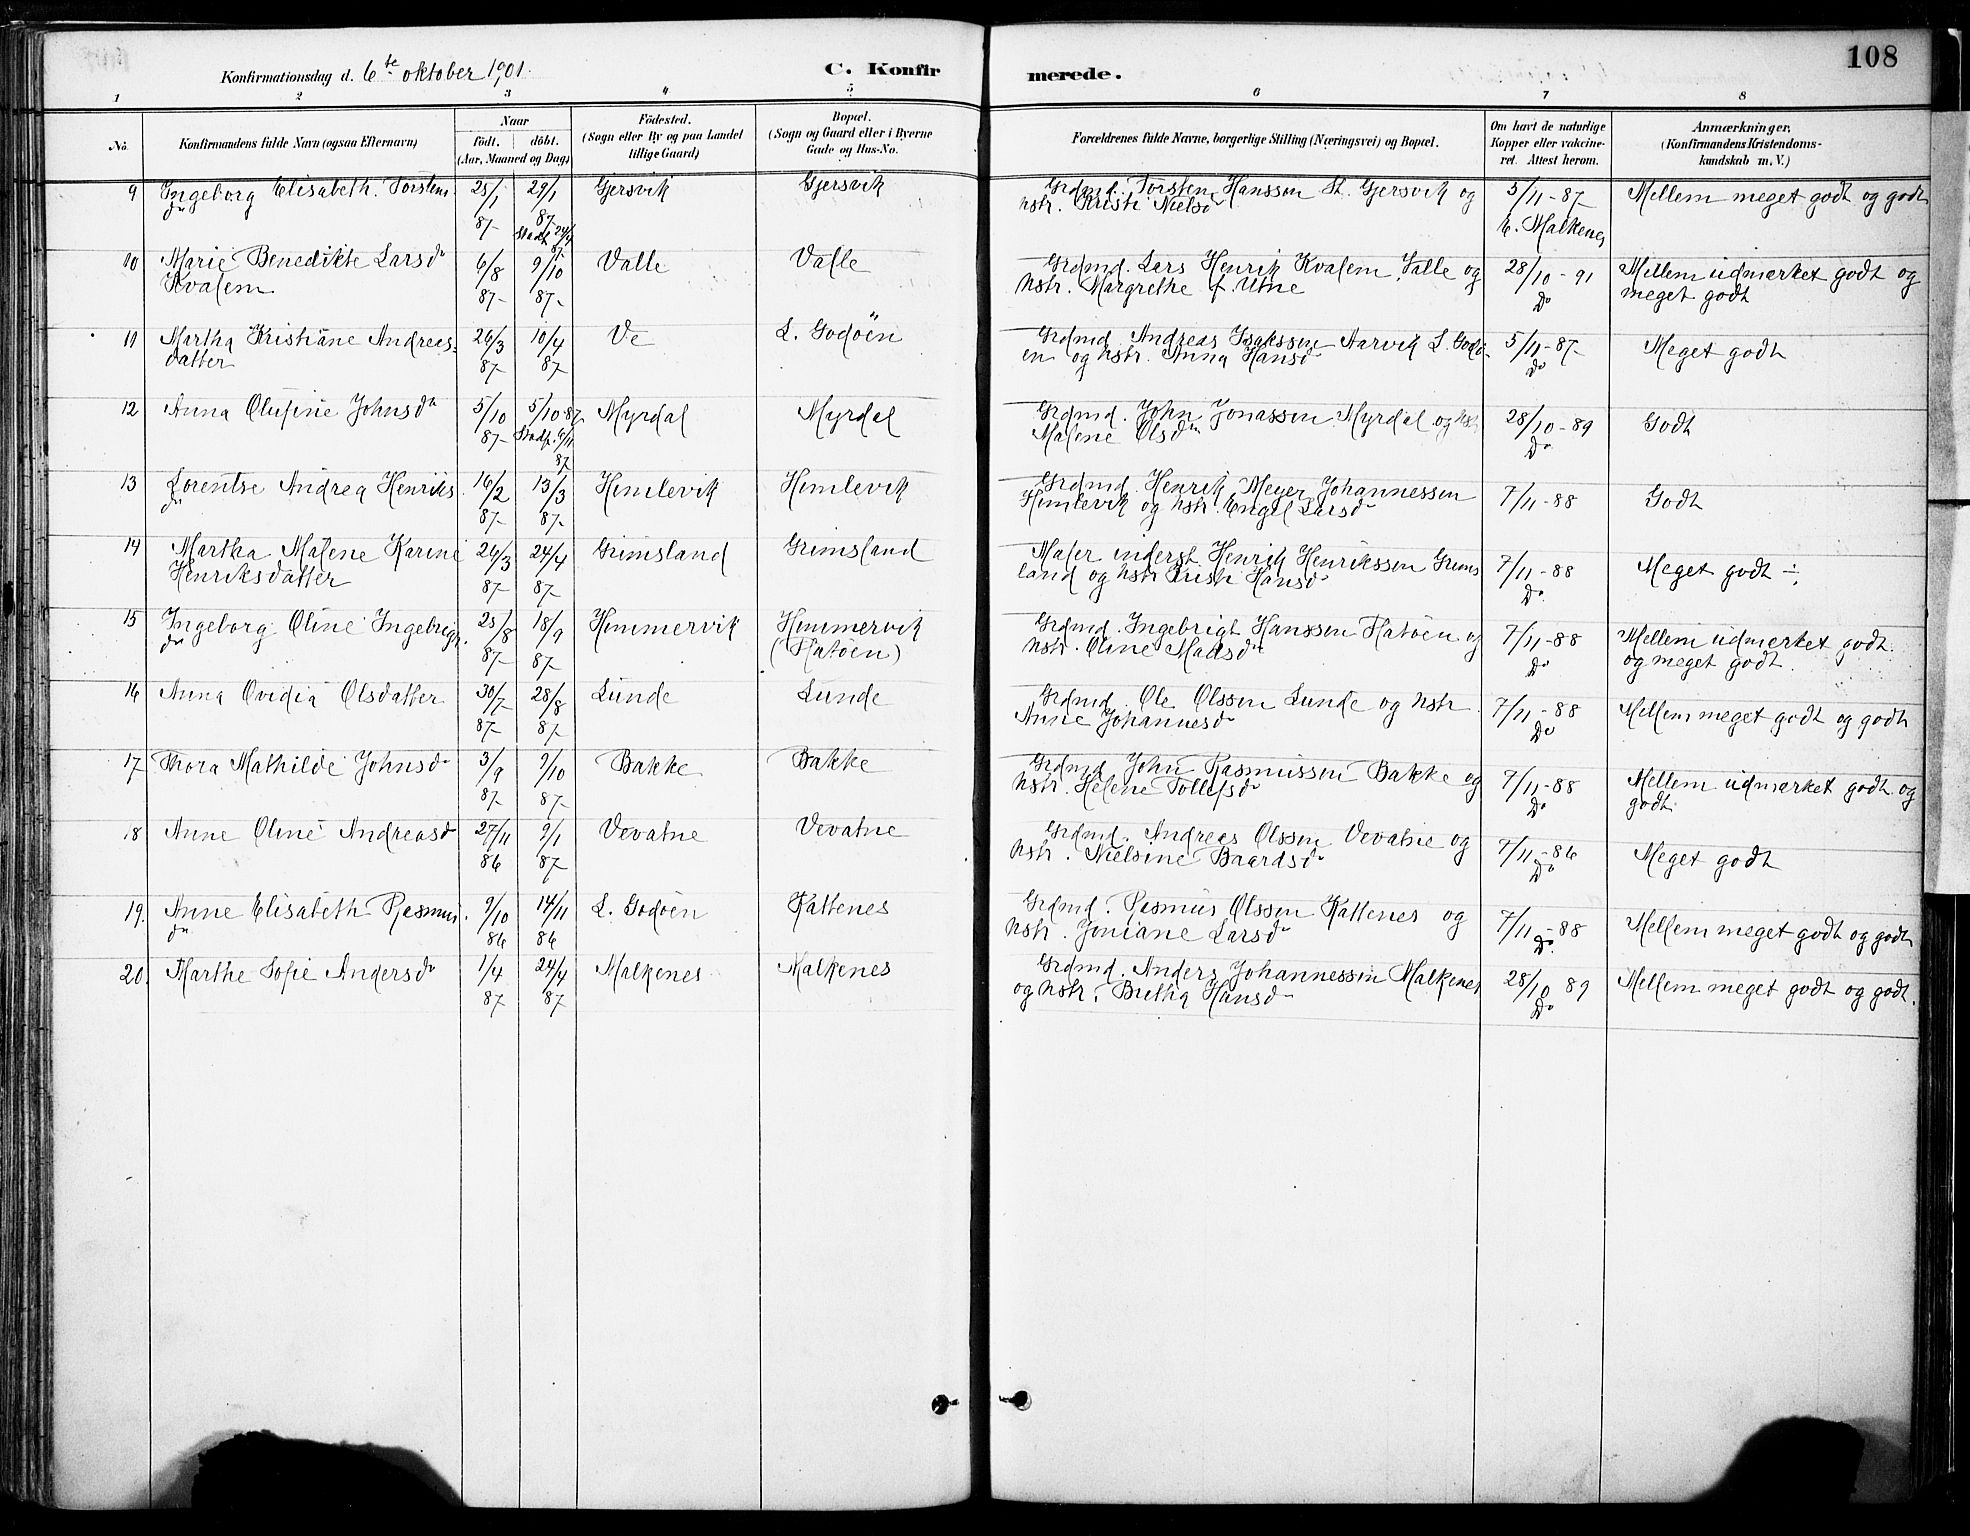 108
Konfirmationsdag d. 6te oktober 1901.
C. Konfirmerede.
1 2 3 4 5 6 7 8
No. Konfirmandens fulde Navn (ogsaa Efternavn) Naar födt. döbt. (Aar, Maaned og Dag) Födested. (Sogn eller By og paa Landet tillige Gaard) Bopæl. (Sogn og Gaard eller i Byerne Gade og Hus-No. Forældrenes fulde Navne, borgerlige Stilling (Næringsvei) og Bopæl. Om havt de naturlige Kopper eller vaccineret. Attest herom. Anmærkninger, (Konfirmandens Kristendomskundskab m. V.)
9 Ingeborg Elisabeth Torstens- 25/1 29/1 Gjersvik Gjersvik Grdmd. Torsten Hanssen St. Gjersvik og 5/11-87 Mellem meget godt og godt
dr 87- 87- Stadf. 24/4 87 hstr. Kristi Nielsdr E. Malkenes
10 Marie Benedikte Larsdr 6/8 9/10 Valle Valle Grdmd. Lars Henrik Kvalem, Valle og 28/10-91 Mellem udmerket godt og
Kvalem 87- 87- hstr. Margrethe f. Utne Do meget godt
11 Martha Kristiane Andreas- 26/3 10/4 Ve L. Godöen Grdmd. Andreas Isakssen Aarvik L. Godö- 5/11-87- Meget godt
datter 87- 87 en og hstr. Anna Hansdr Do
12 Anna Olufine Johnsdr 5/10 5/10 87 Myrdal Myrdal Grdmd. John Jonassen Myrdal og hstr 28/10-89 Godt
87- Stadf. 6/11 87 Malene Olsdr Do
13 Lorentse Andrea Henriks- 16/2 13/3 Himlevik Himlevik Grdmd. Henrik Meyer Johannessen 7/11-88 Godt
dr 87- 87- Himlevik og hstr. Engel Larsdr
14 Martha Malene Karine 26/3 24/4 Grimsland Grimsland Maler inderst Henrik Henrikssen Grims 7/11-88 Meget godt ÷
Henriksdatter 87- 87 land og hstr Kristi Hansdr Do
15 Ingeborg Oline Ingebrigts 25/8 18/9 Himmervik Himmervik Grdmd. Ingebrigt Hanssen Hatöen og 7/11-88 Mellem udmerket godt
dr 87- 87 (Hatöen) hstr. Oline Madsdr Do og meget godt.
16 Anna Ovidia Olsdatter 30/7 28/8 Lunde Lunde Grdmd. Ole Olssen Lunde og hstr. 7/11-88 Mellem meget godt og godt
87- 87- Anne Johannesdr Do
17 Thora Mathilde Johnsdr 3/9 9/10 Bakke Bakke Grdmd. John Rasmussen Bakke og 7/11-88 Mellem udmerket godt og
87- 87- hstr. Helene Tollefsdr Do godt.
18 Anne Oline Andreasdr 27/11 9/1 Vevatne Vevatne Grdmd. Andreas Olssen Vevatne og 7/11-86 Meget godt
86 87 hstr. Nielsine Baardsdr Do
19. Anne Elisabeth Rasmus. 9/10 14/11 L. Godöen Kattenes Grdmd. Rasmus Olssen Kattenes og 7/11-88 Mellem meget godt og godt
dr 86 86 hstr. Joniane Larsdr Do
20. Marthe Sofie Andersdr 1/4 24/4 Malkenes Malkenes Grdmd. Anders Johannessen Malkenes 28/10 89 Mellem meget godt og godt.
87 87 og hstr. Britha Hansdr Do